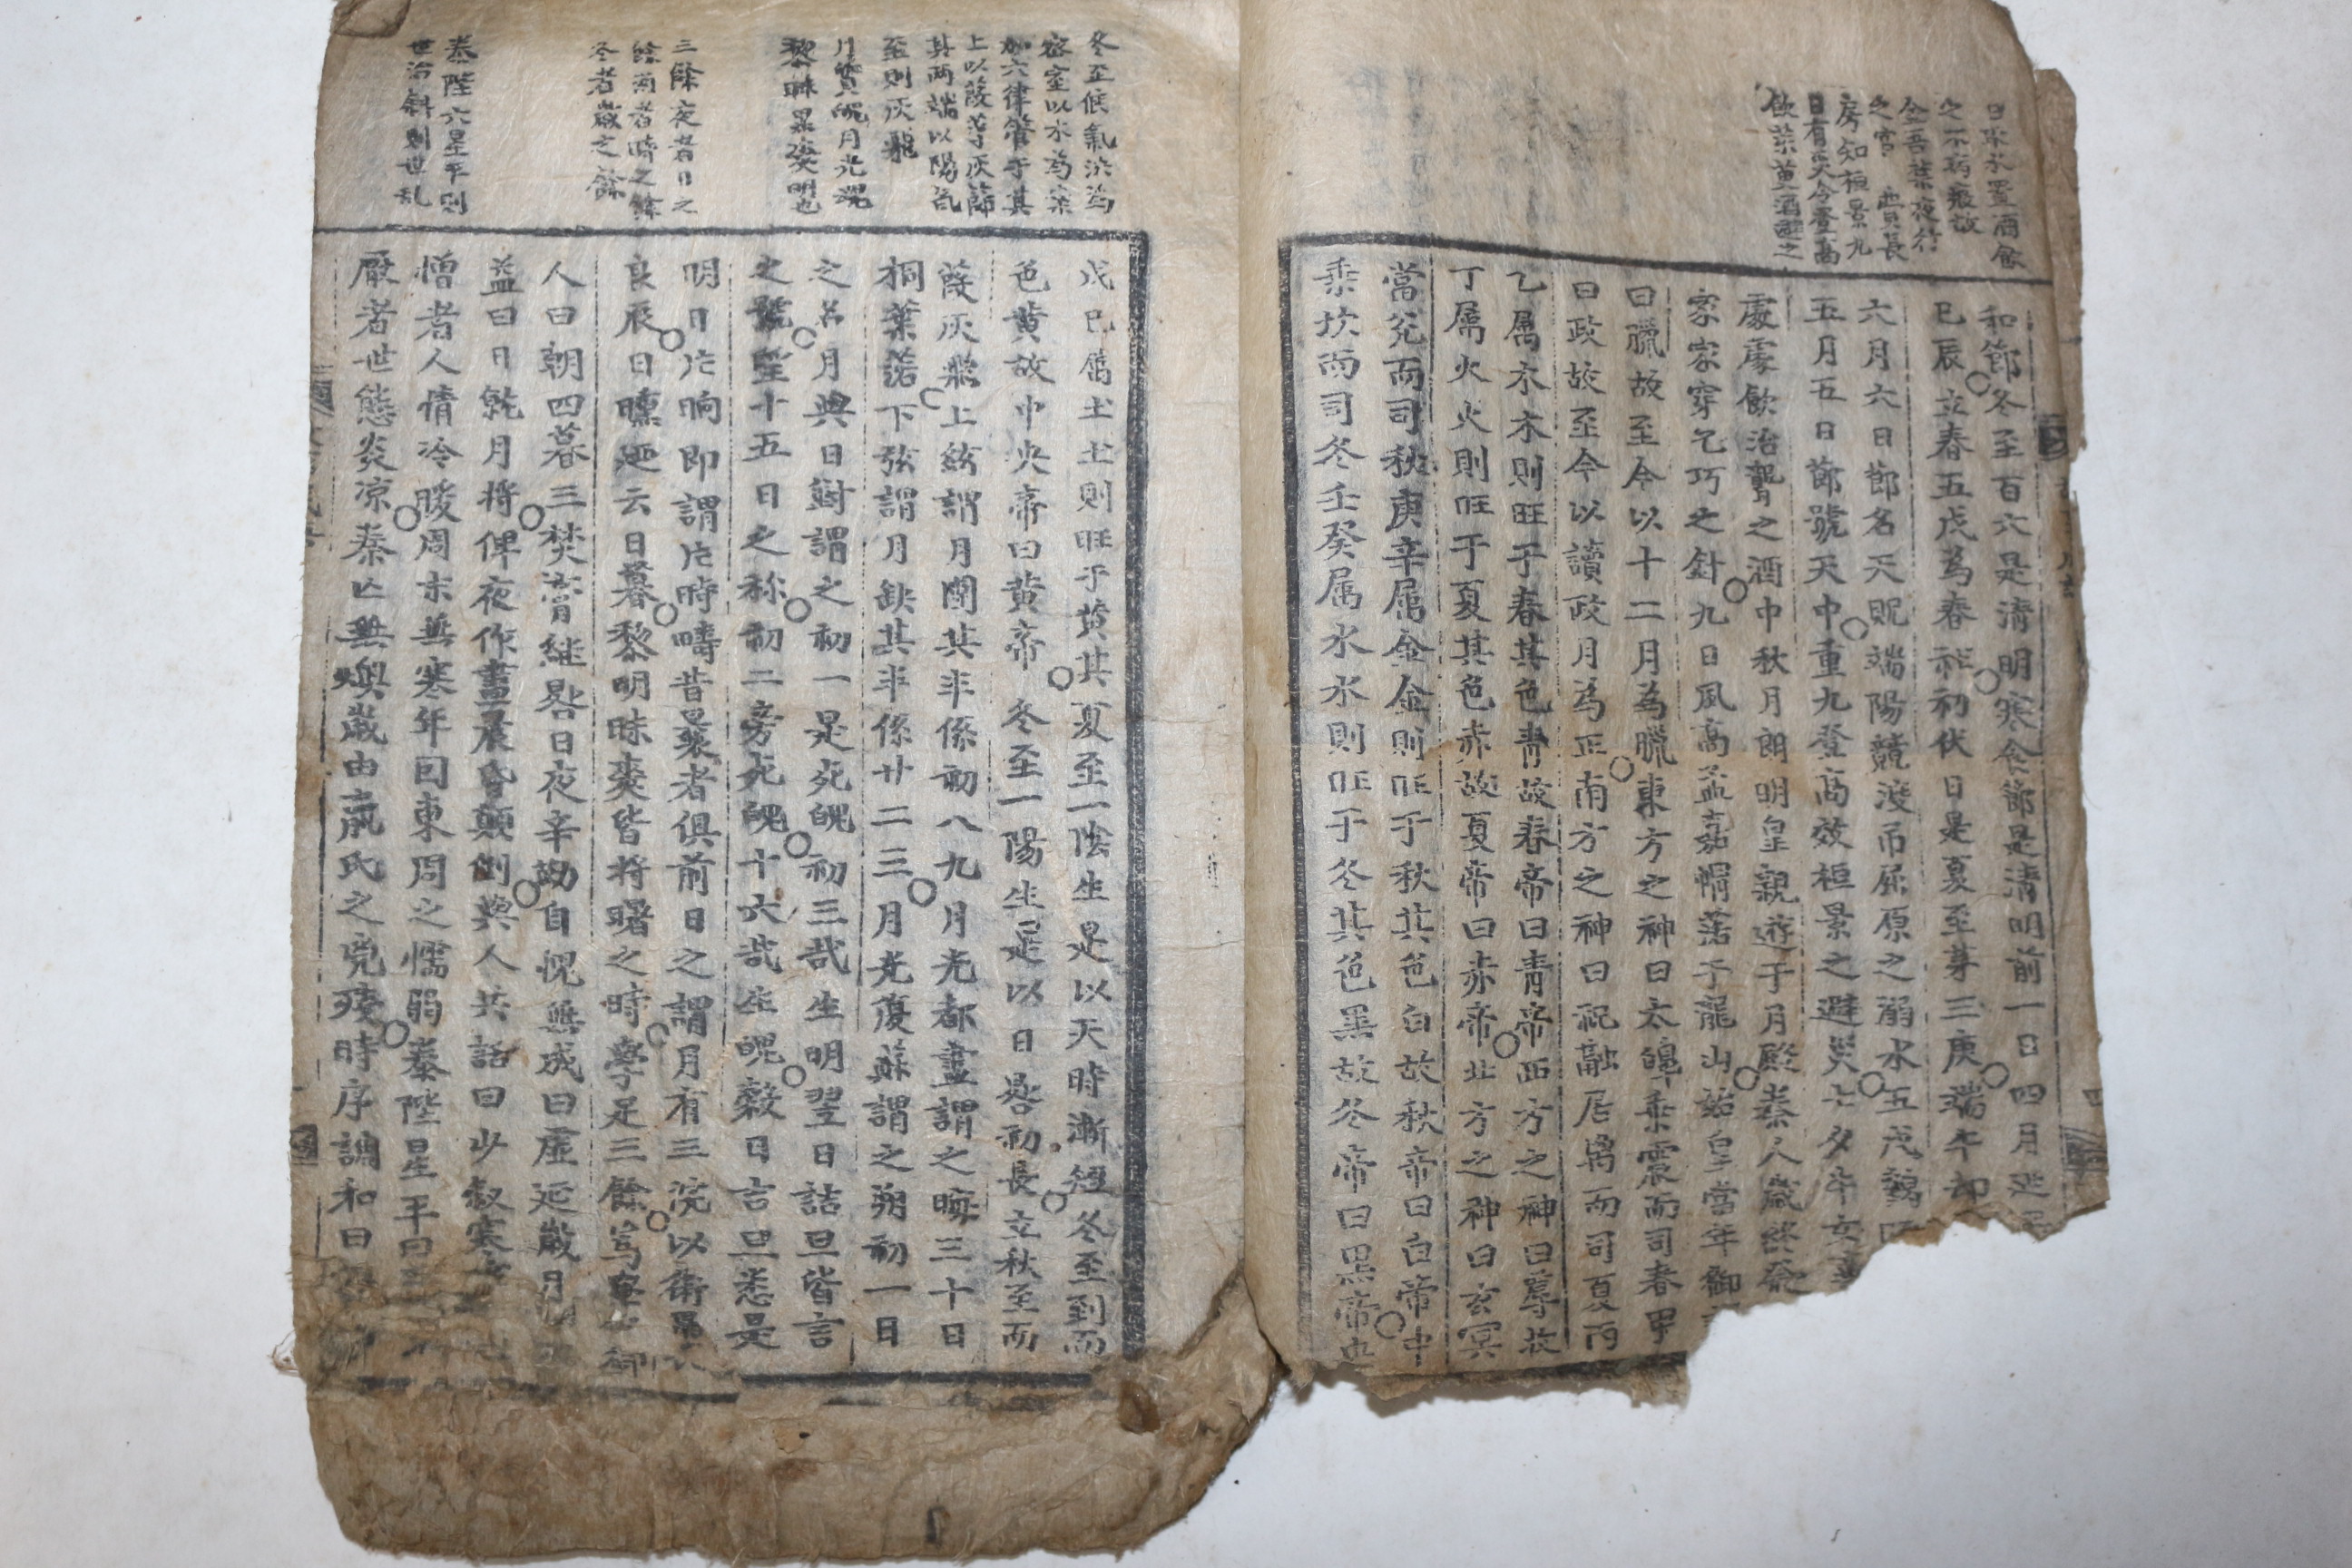 日取水置酒飲
之不病瘧故
金吾葉夜行
之官 費長
房知桓景九
日有灾令登高
飲茱萸酒避之
和節冬至百六是清明寒食節是清明前一日四月
巳辰立春五戊爲春社初伏日是夏至第三庚端午却
六月六日節名天貺端陽競渡吊屈原之溺水五戊鷄
五月五日節號天中重九登高效桓景之避災七夕牛女
處處飲治聾之酒中秋月朗明皇親遊于月殿秦人歲終
家家穿乞巧之針九日風高孟嘉帽落于龍山始皇當年御
曰臘故至今以十二月爲臘東方之神曰太皥乘震而司春甲
曰政故至今以讀政月爲正南方之神曰祝融居禹而司夏丙
乙屬木木則旺于春其色靑故春帝曰靑帝西方之神曰蓐收
丁屬火火則旺于夏其色赤故夏帝曰赤帝北方之神曰玄冥
當兊而司秋庚辛屬金金則旺于秋其色白故秋帝曰白帝中
乘坎而司冬壬癸属水水則旺于冬其色黑故冬帝曰黑帝
冬至候氣法爲
密室以木爲案
加六律管于其
上以葭莩灰節
其兩端以陽氣
至則灰飛
月質魄月光魂
黎昧黑爽明也
三餘夜者日之
餘雨者時之餘
冬者歲之餘
泰陛六星平則
世治斜則世乱
戊巳属土土則旺于黄其夏至一陰生是以天時漸短冬至到而
色黄故中央帝曰黄帝 冬至一陽生是以日晷初長立秋至而
葭灰飛上絃謂月闕其半係初八九月光都盡謂之晦三十日
桐葉落下弦謂月缺其半係廿二三月光復蘇謂之朔初一日
之名月與日對謂之初一是死魄初三哉生明翌日詰旦皆言
之號望十五日之称初二旁死魄十六哉生魄穀日言旦悉是
明日片晌即謂片時疇昔曩者俱前日之謂月有三浣以
良辰日曛廼云日暮黎明昧爽皆將曙之時學足三餘
人曰朝四暮三焚膏継晷日夜辛勤自愧無成曰虛延歲月
益曰日就月將俾夜作晝晨昏顛倒與人共話曰少叙寒
憎者人情冷暖周末無寒年因東周之懦弱秦陛星平曰
厭者世態炎凉秦亡無燠歲由嬴氏之兇殘時序調和曰